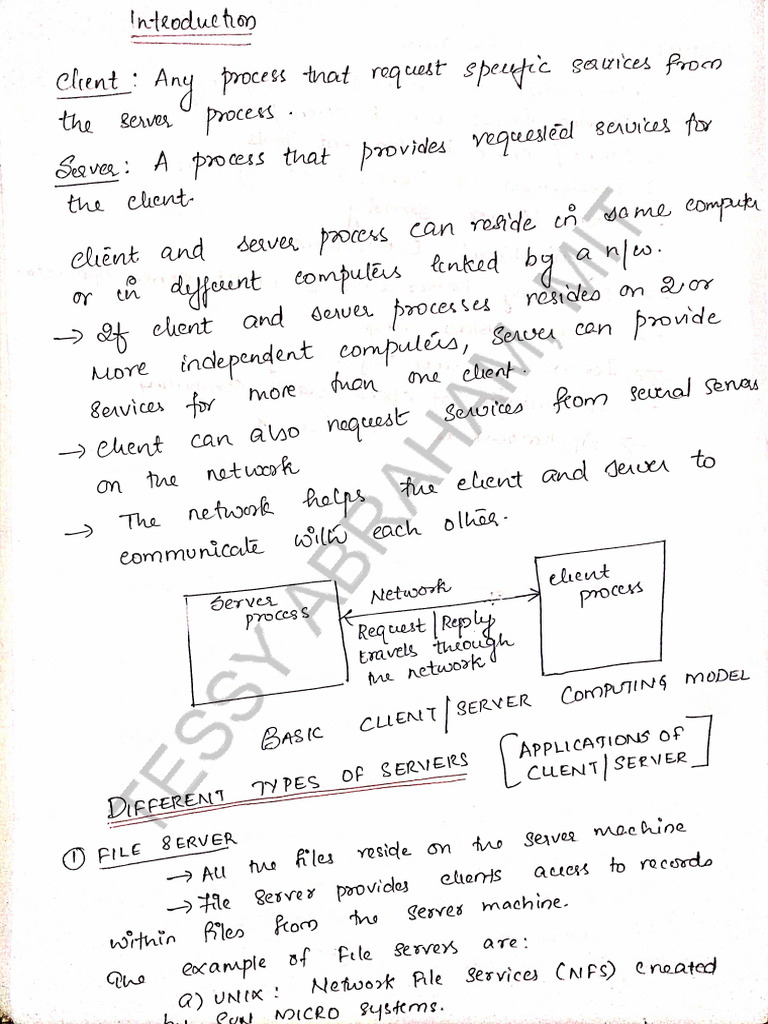 Introduction
Client : Any process that request specific services from
the server process.
Server : A process that provides requested services for
the client.
Client and server process can reside in same computer
or in different computers linked by a n/w.
→ If client and server processes resides on 2 or
More independent computers, server can provide
services for more than one client.
→ Client can also request services from several servers
on the network
→ The network helps the client and server to
communicate with each other.
Server process
Network
Request/Reply
travels through
the network
client process
BASIC CLIENT/SERVER COMPUTING MODEL
DIFFERENT TYPES OF SERVERS [APPLICATIONS OF
CLIENT/SERVER]
① FILE SERVER
→ All the files reside on the server machine
→ File server provides clients access to records
within files from the server machine.
The example of file servers are:
a) UNIX : Network File Services (NFS) created
by SUN MICRO Systems.
TESSY ABRAHAM, MIT